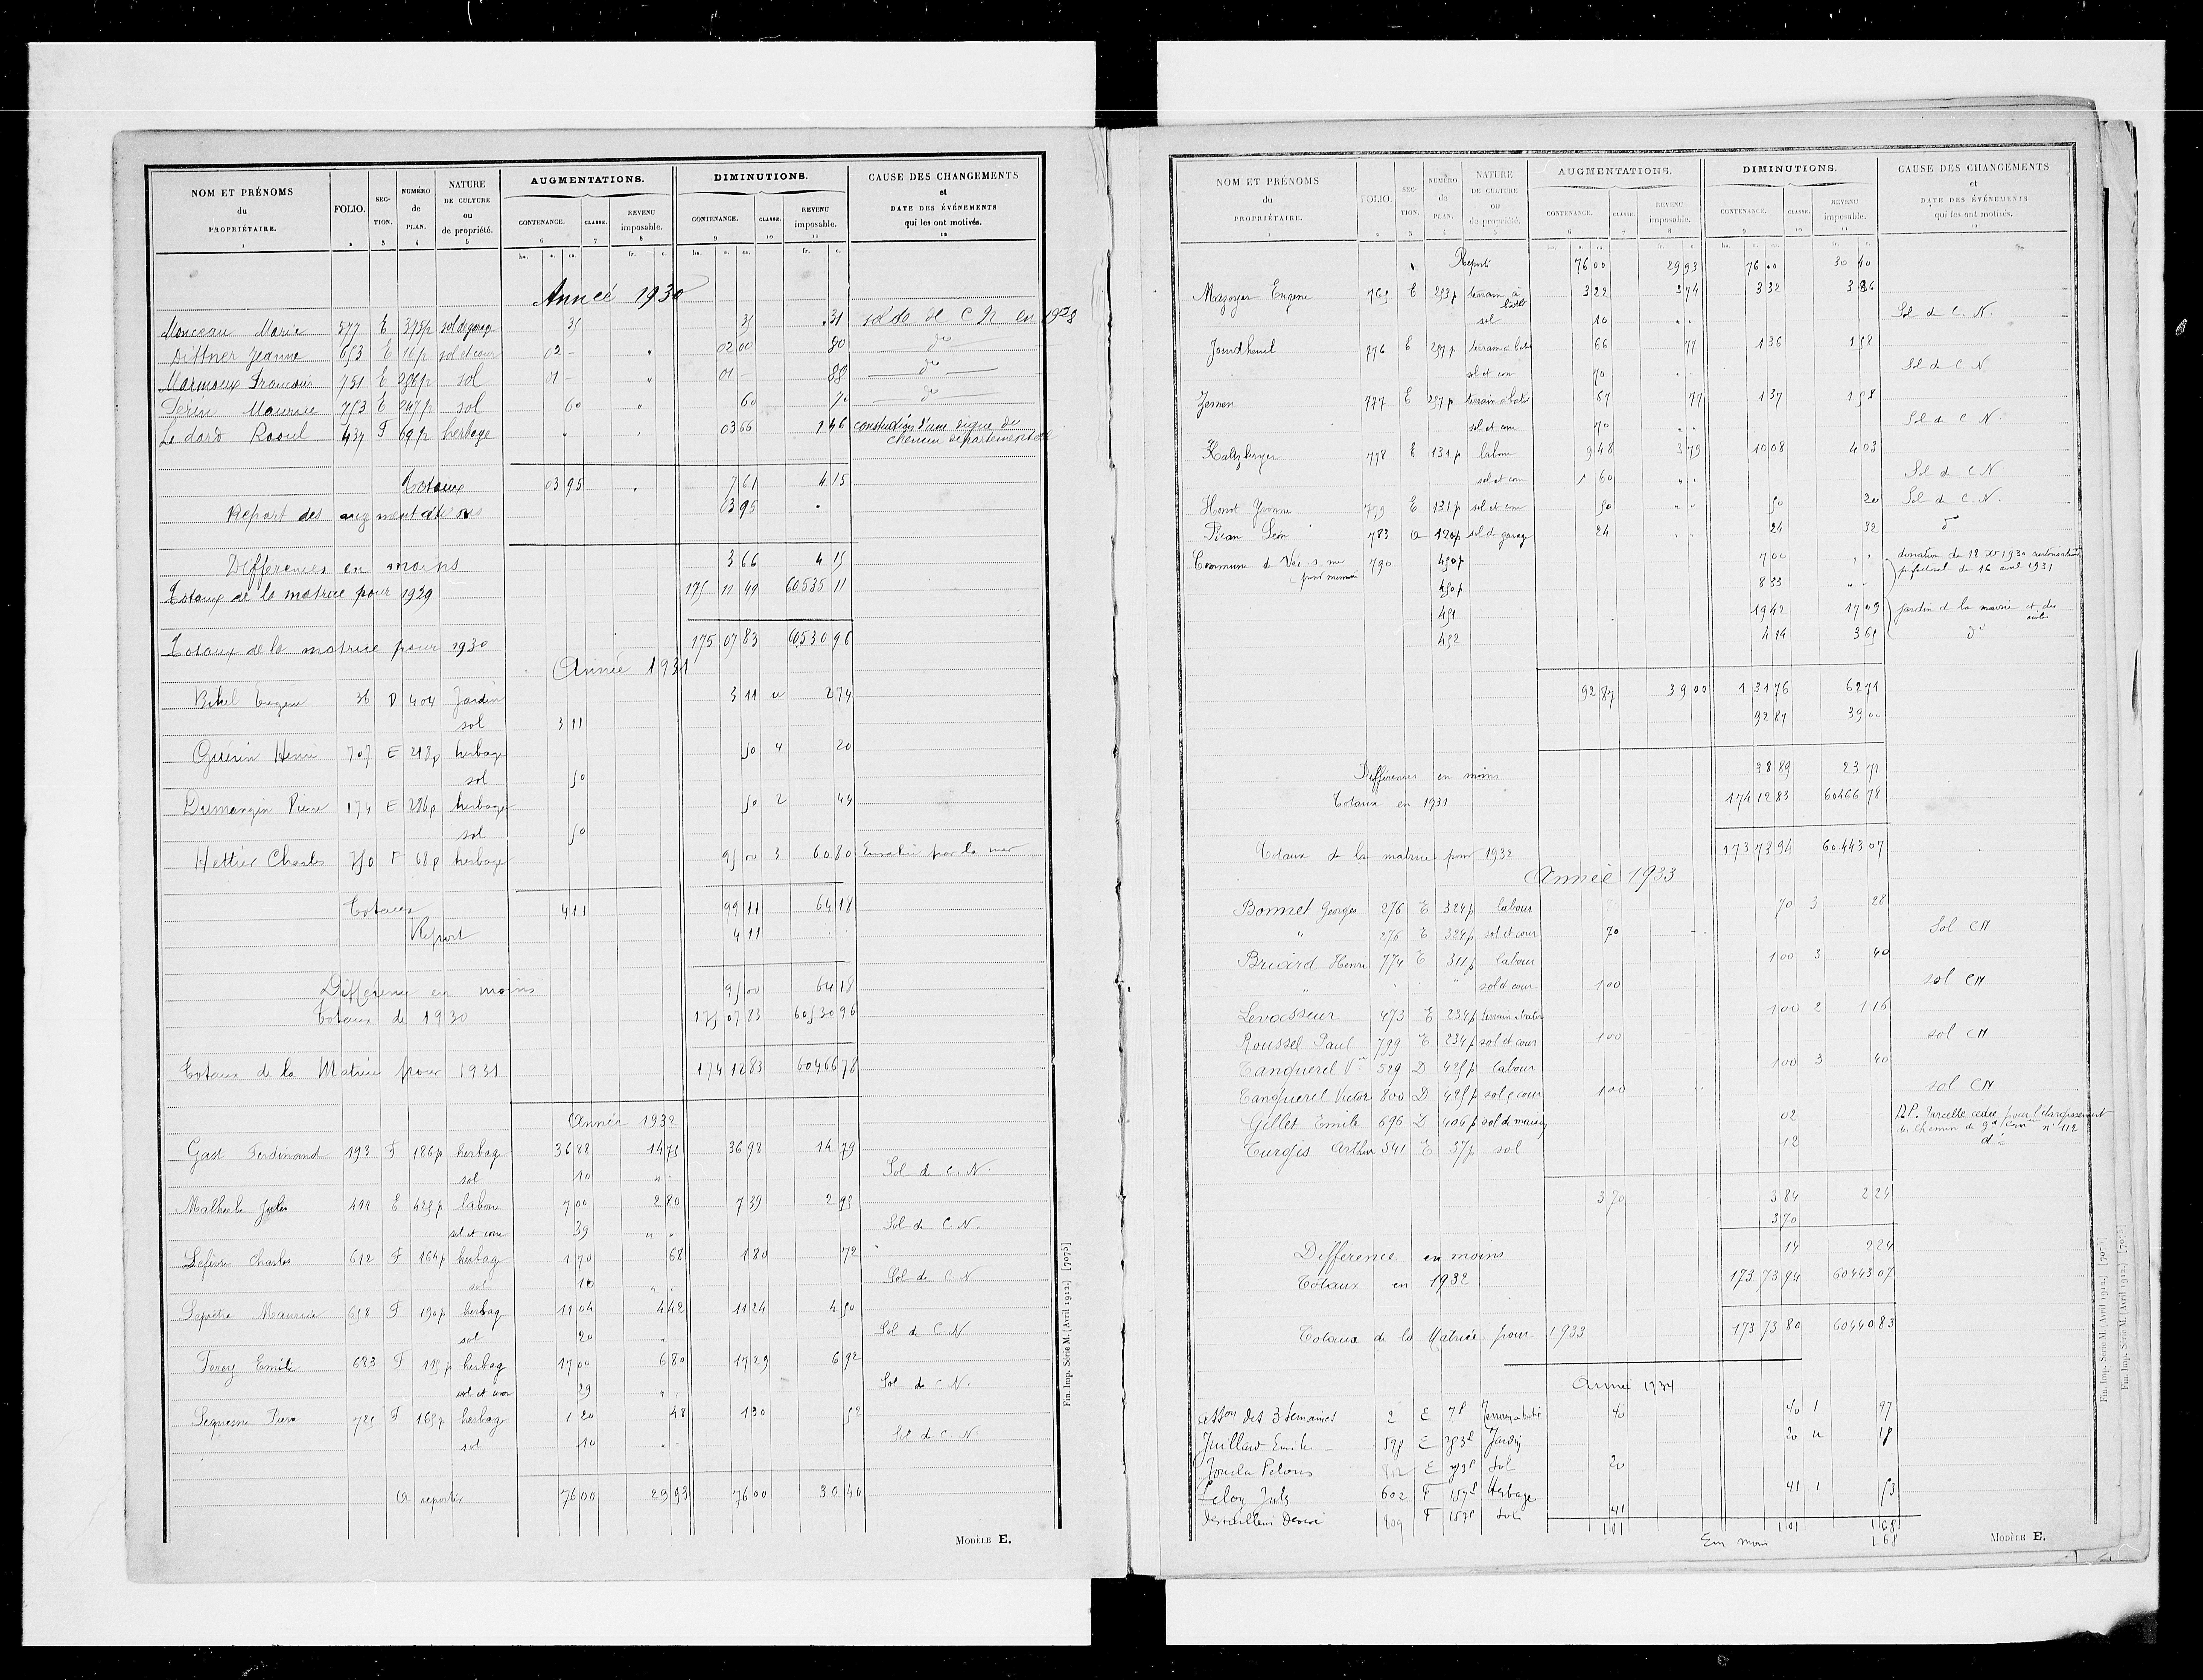 NOM ET PRÉNOMS du PROPRIÉTAIRE. 1 | FOLIO. 2 | SECTION. 3 | NUMÉRO de PLAN. 4 | NATURE DE CULTURE ou de propriété. 5 | AUGMENTATIONS. CONTENANCE. 6 CLASSE. 7 REVENU imposable. 8 | DIMINUTIONS. CONTENANCE. 9 CLASSE. 10 REVENU imposable. 11 | CAUSE DES CHANGEMENTS et DATE DES ÉVÉNEMENTS qui les ont motivés. 12
ha. a. ca. fr. c. ha. a. ca. fr. c.
Année 1930
Monceau Marie 577 E 375p sol de garage 35 35 31 sol de de C N en 1928
Dittner Jeanne 653 E 16p sol et cour 02 - 02 00 80 do
Marmoux Francois 751 E 286p sol 01 - 01 - 88 do
Perin Maurice 753 E 247p sol 60 60 70 do
Le dard Raoul 437 F 69p herbage 03 66 1 46 construction d'une digue du
chemin départemental
Totaux 03 95 7 61 4 15
Report des augmentations 03 95
Différences en moins 3 66 4 15
Totaux de la matrice pour 1929 175 11 49 60535 11
Totaux de la matrice pour 1930 175 07 83 60530 96
Année 1931
Bihel Eugène 36 D 404 Jardin 3 11 u 2 74
sol 3 11
Guérin Henri 707 E 218p herbage 50 4 20
sol 50
Dumangin Pierre 174 E 286p herbage 50 2 44
sol 50
Hettier Charles 750 F 68p herbage 95 00 3 60 80 Envahi par la mer
Totaux 4 11 99 11 64 18
Report 4 11
Différence en moins 95 00 64 18
Totaux de 1930 175 07 83 60530 96
Totaux de la Matrice pour 1931 174 12 83 60466 78
Année 1932
Gast Ferdinand 193 F 186p herbag 36 88 14 75 36 98 14 79
sol 10 Sol de C. N.
Malherbe Jules 411 E 425p labour 7 00 2 80 7 39 2 95
sol et cour 39 Sol de C. N.
Lefèvre Charles 612 F 164p herbag 1 70 68 1 80 72
sol 10 Sol de C N
Maurice 658 F 190p herbag 11 04 4 42 11 24 4 50
sol 20 Sol de C N
Emile 683 F 115p herbag 17 00 6 80 17 29 6 92
sol et cour 29 Sol de C N.
Lequesne 725 F 165p herbag 1 20 48 1 30 52
sol 10 Sol de C. N.
A reporter 76 00 29 93 76 00 30 40
Fin. Imp. Série M. (Avril 1912.) [7075]
MODÈLE E.
NOM ET PRÉNOMS du PROPRIÉTAIRE. 1 | FOLIO. 2 | SECTION. 3 | NUMÉRO de PLAN. 4 | NATURE DE CULTURE ou de propriété. 5 | AUGMENTATIONS. CONTENANCE. 6 CLASSE. 7 REVENU imposable. 8 | DIMINUTIONS. CONTENANCE. 9 CLASSE. 10 REVENU imposable. 11 | CAUSE DES CHANGEMENTS et DATE DES ÉVÉNEMENTS qui les ont motivés. 12
ha. a. ca. fr. c. ha. a. ca. fr. c.
Report 76 00 29 93 76 00 30 40
Mazoyer Eugene 765 E 253p terrain à batir 3 22 3 74 3 32 3 86
sol 10 Sol de C. N.
Jourdheuil 776 E 257p terrain à bat 66 77 1 36 1 58
sol et cour 70 Sol de C N
Zeman 777 E 257p terrain à batir 67 77 1 37 1 58
sol et cour 70 Sol de C N.
Kaltzberger 778 E 131p labour 9 48 3 79 10 08 4 03
sol et cour 60 Sol de C N
Yvonne 779 E 131p sol et cour 50 50 20 Sol de C. N.
Léon 783 A 120p sol de garag 24 24 32 do
Commune de Ver s. mer 790 450p 7 00 donation du 18 Xbre 1930
450p 8 33 préfectoral du 16 avril 1931
451 19 42 17 09 jardin de la mairie et des écoles
452 4 14 3 65 do
92 87 39 00 1 31 76 62 71
92 87 39 00
Différence en moins 38 89 23 71
Totaux en 1931 174 12 83 60466 78
Totaux de la matrice pour 1932 173 73 94 60.443 07
Année 1933
Bonnet Georges 276 E 324p labour 70 3 28
" 276 E 324p sol et cour 70 Sol CN
Briard Henri 774 E 311p labour 1 00 3 40
" sol et cour 1 00 sol CN
Levasseur 473 E 234p terrain à batir 1 00 2 1 16
Roussel Paul 799 E 234p sol et cour 1 00 sol CN
Tanquerel Vor 529 D 425p labour 1 00 3 40
Tanquerel Victor 800 D 425p sol & cour 1 00 sol CN
Gillet Emile 696 D 406p sol de maison 02 D.P. Parcelle cédée pour l'élargissement
du chemin de gde Con n° 112
Turgis Arthur 541 E 37p sol 12 do
3 70 3 84 2 24
3 70
Difference en moins 14 2 24
Totaux en 1932 173 73 94 60443 07
Totaux de la Matrice pour 1933 173 73 80 60440 83
Année 1934
des 3 Semaines 2 E 7p Terrain à batir 40 40 1 97
Juillard Emile 578 E 253p Jardin 20 u 18
E 253p Sol 20
Leloy Jules 602 F 157p Herbage 41 1 53
809 F 157p Sol 41
1 01 1 01 1 68
En moins 1 68
Fin. Imp. Série M. (Avril 1912.) [7075]
Fin. Imp. Série M. (Avril 1912.) [7075]
MODÈLE E.